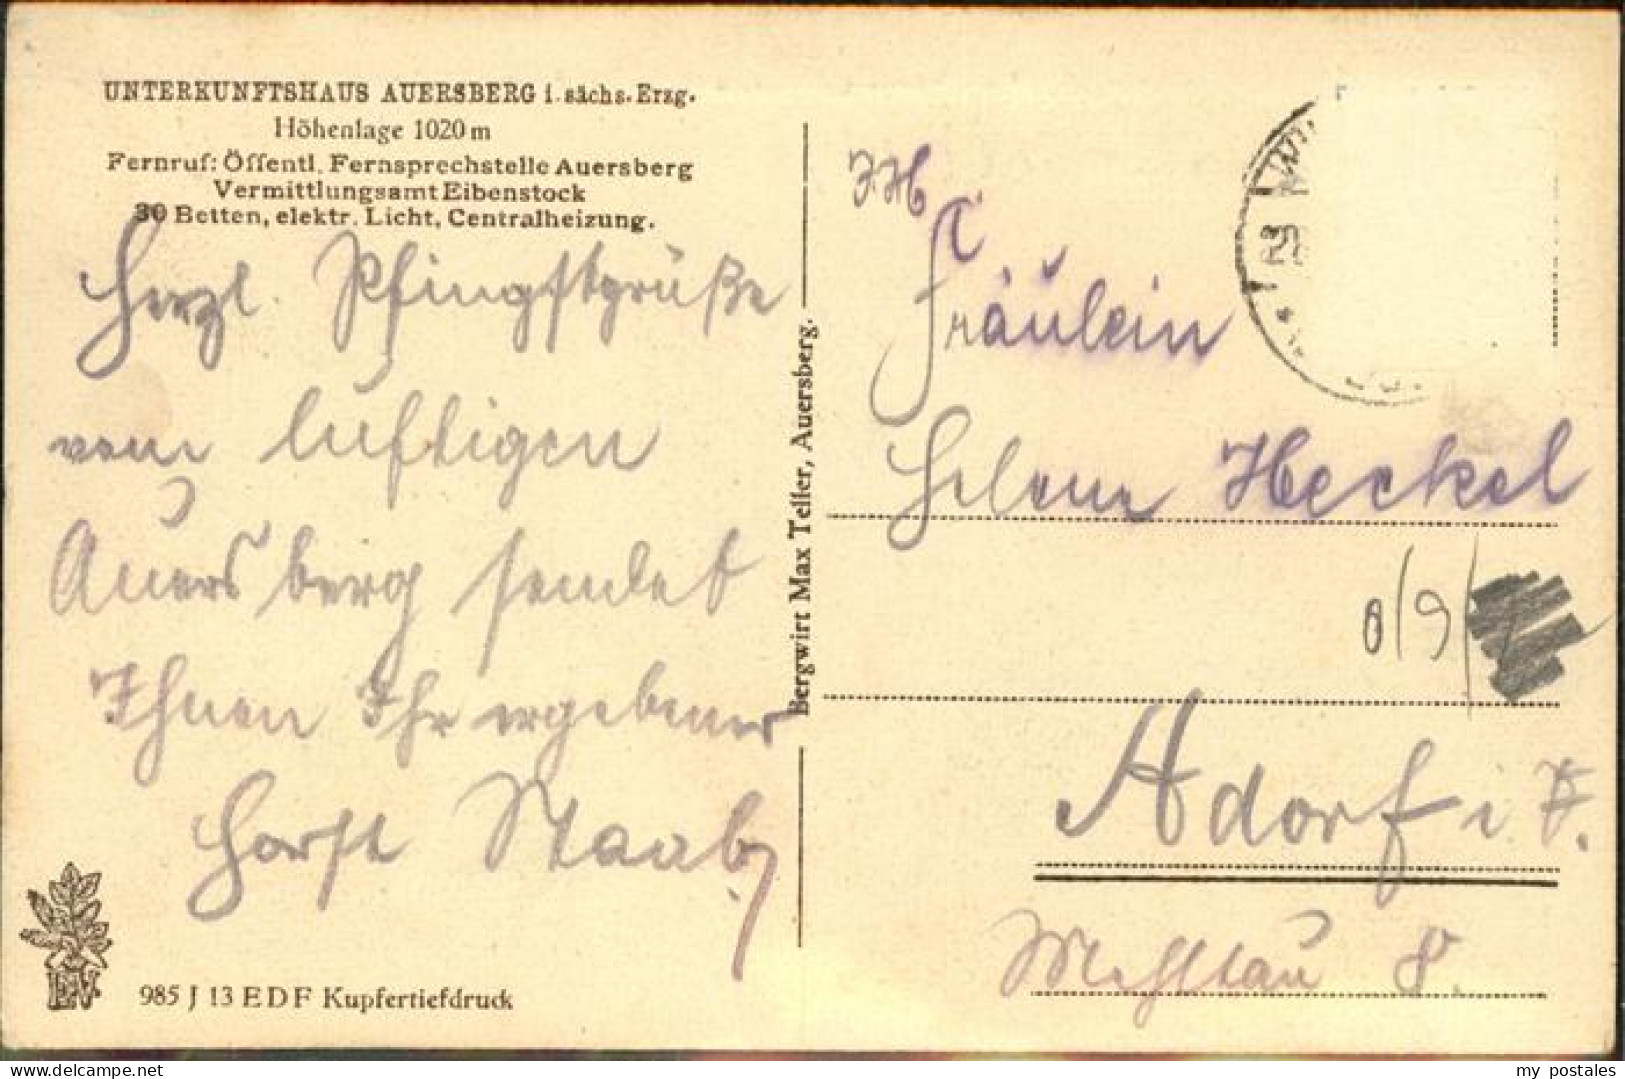 UNTERKUNFTSHAUS AUERSBERG i. sächs. Erzg.
Höhenlage 1020 m
Fernruf: Öffentl. Fernsprechstelle Auersberg
Vermittlungsamt Eibenstock
30 Betten, elektr. Licht, Centralheizung.
Herzl. Pfingstgrüße
vom luftigen
Auersberg sendet
Ihnen Ihr ergebener
Horst Staab
985 J 13 EDF Kupfertiefdruck
Bergwirt Max Teller, Auersberg.
Fräulein
Helene Heckel
Adorf i. V.
8.
delcampe.net
my_postales